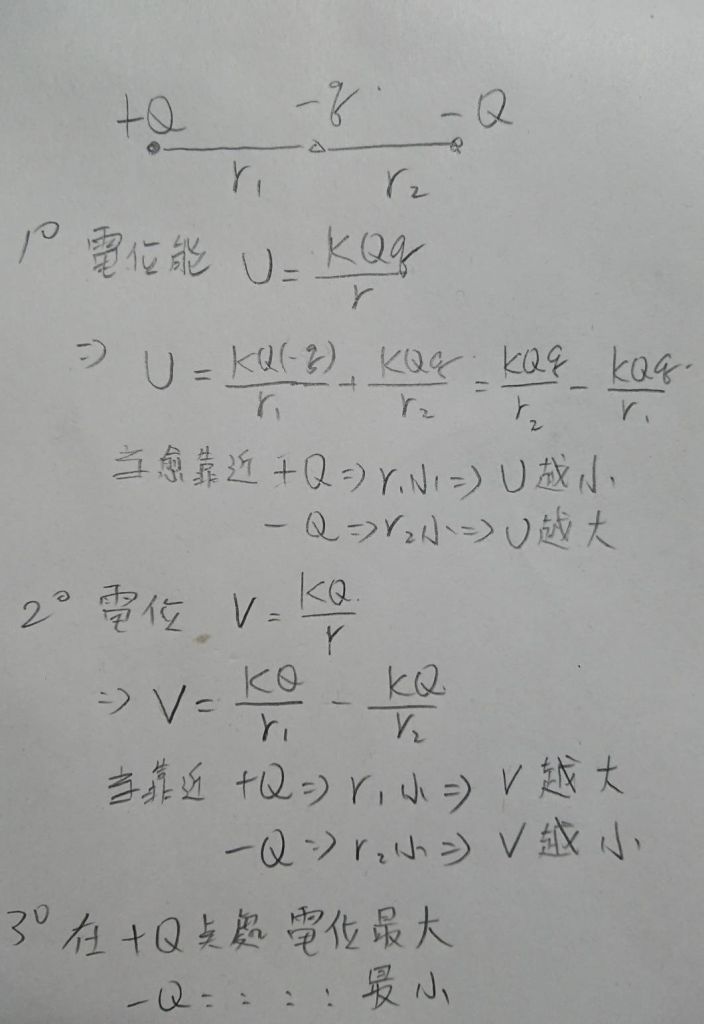 +Q -q -Q
r₁ r₂
1° 電位能 U = KQq/r
⇒ U = KQ(-q)/r₁ + KQq/r₂ = KQq/r₂ - KQq/r₁
当愈靠近 +Q ⇒ r₁小 ⇒ U越小
-Q ⇒ r₂小 ⇒ U越大
2° 電位 V = KQ/r
⇒ V = KQ/r₁ - KQ/r₂
当靠近 +Q ⇒ r₁小 ⇒ V越大
-Q ⇒ r₂小 ⇒ V越小
3° 在 +Q 点處 電位最大
-Q : : : : 最小